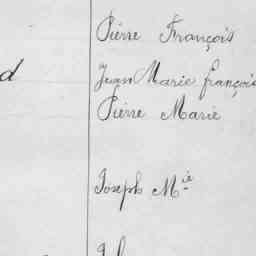 Pierre François
d Jean Marie françois
Pierre Marie
Joseph M.ie